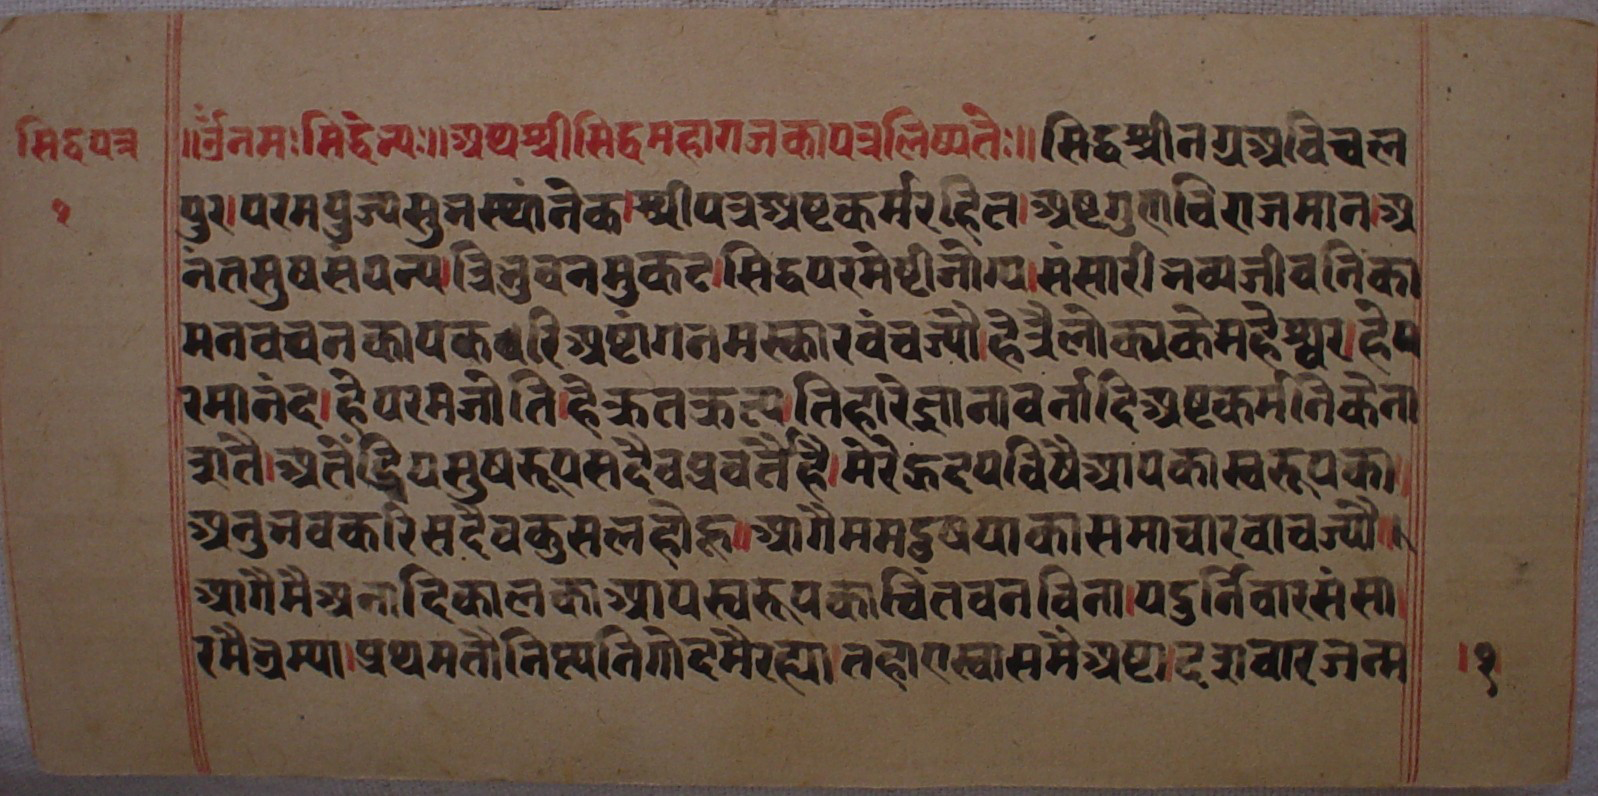 सिद्धपत्र
१
॥ॐनमःसिद्धेभ्यः॥अथश्रीसिद्धमहाराजकापत्रलिष्यतेः॥सिद्धश्रीनग्रअविचल
पुर।परमपुज्यसुभस्थांनेक।श्रीपत्रअष्टकर्मरहित।अष्टगुणविराजमान।अ
नंतसुषसंपन्य।त्रिभुवनमुकट।सिद्धपरमेष्टीजोग्य।संसारीभव्यजीवनिका
मनवचनकायकवरिअष्टांगनमस्कारवंचज्यौ।हेत्रैलोक्यकेमहेश्वर।हेप
रमानंद।हेपरमजोति।हेक्रतक्रत्य।तिहारेज्ञानावर्नादिअष्टकर्मनिकेना
शतै।अतेंद्रियसुषरूपसदैवप्रवर्तैहै।मेरेह्रदयविषैआपकास्वरूपका।
अनुभवकरिसदैवकुसलहोहू॥आगैममदुषयाकासमाचारवाचज्यौ॥
आगैमैअनादिकालकाआपस्वरूपकाचिंतवनविना।यदुर्निवारसंसा।
रमैभ्रम्या।प्रथमतौनित्यनिगोदमैरह्या।तहाएस्वासमैंअष्टा।दशवारजन्म
।१।